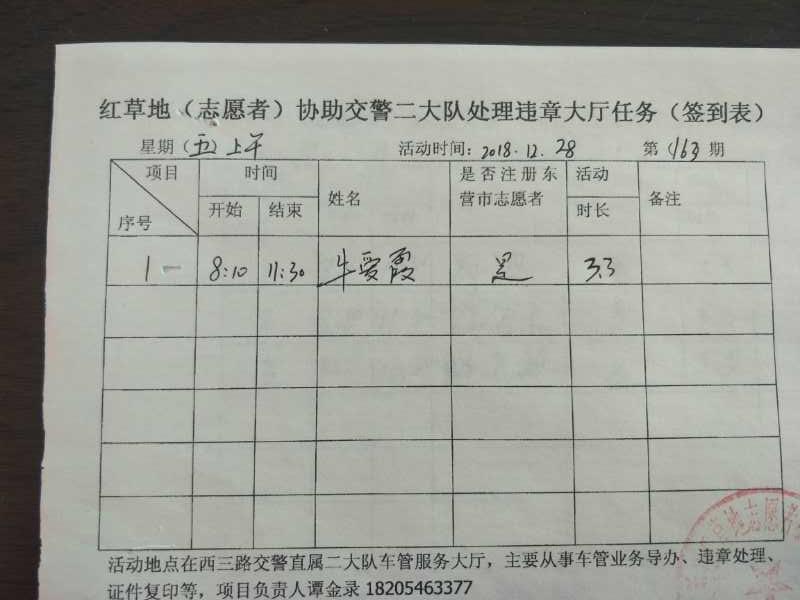 红草地（志愿者）协助交警二大队处理违章大厅任务（签到表）
星期（五）上午 活动时间：2018.12.28 第（163）期
项目 时间 姓名 是否注册东营市志愿者 活动时长 备注
序号 开始 结束
1 8:10 11:30 牛爱霞 是 3.3
活动地点在西三路交警直属二大队车管服务大厅，主要从事车管业务导办、违章处理、
证件复印等，项目负责人谭金录 18205463377
草地志愿者